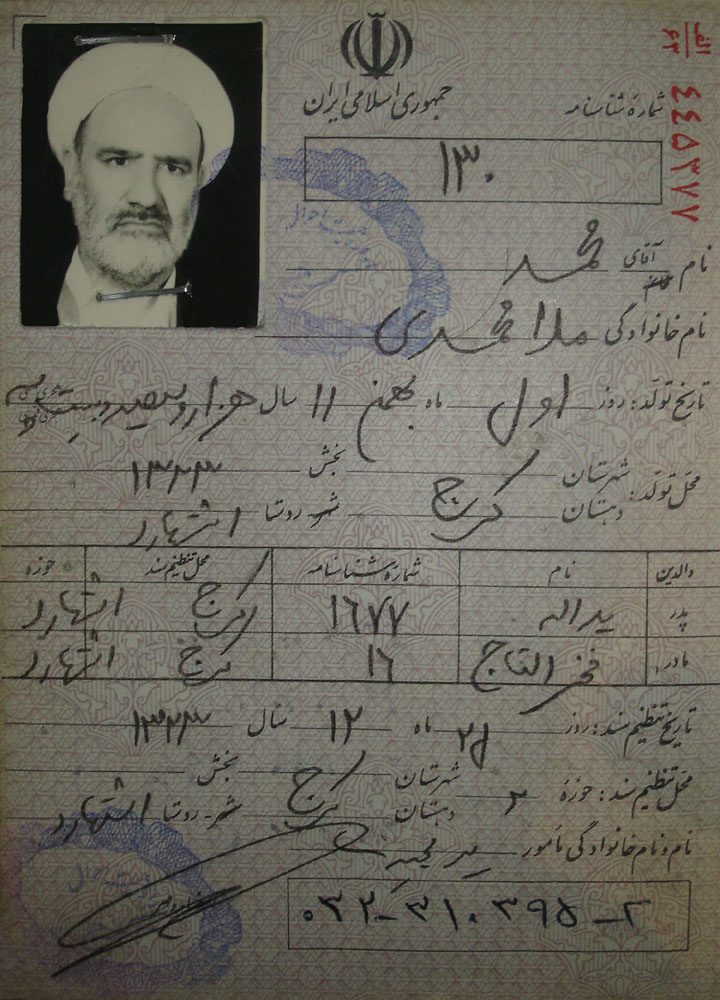 جمهوری اسلامی ایران
الف/۶۳ ۴۴۵۳۷۷
شمارهٔ شناسنامه
۱۳۰
نام آقای محمد
نام خانوادگی ملامحمدی
تاریخ تولد: روز اول ماه بهمن ۱۱ سال هزار و سیصد و بیست و سه
۱۳۲۳
محل تولد: شهرستان دهستان کرج بخش شهر-روستا اشتهارد
والدین نام شمارهٔ شناسنامه محل تنظیم سند حوزه
پدر یداله ۱۶۷۷ کرج اشتهارد
مادر فخر التاج ۱۶ کرج اشتهارد
تاریخ تنظیم سند: روز ۲۵ ماه ۱۲ سال ۱۳۲۳
محل تنظیم سند: حوزهٔ ۲ شهرستان دهستان کرج بخش شهر-روستا اشتهارد
نام و نام خانوادگی مأمور
۰۳۲-۳۱۰۳۹۵-۲